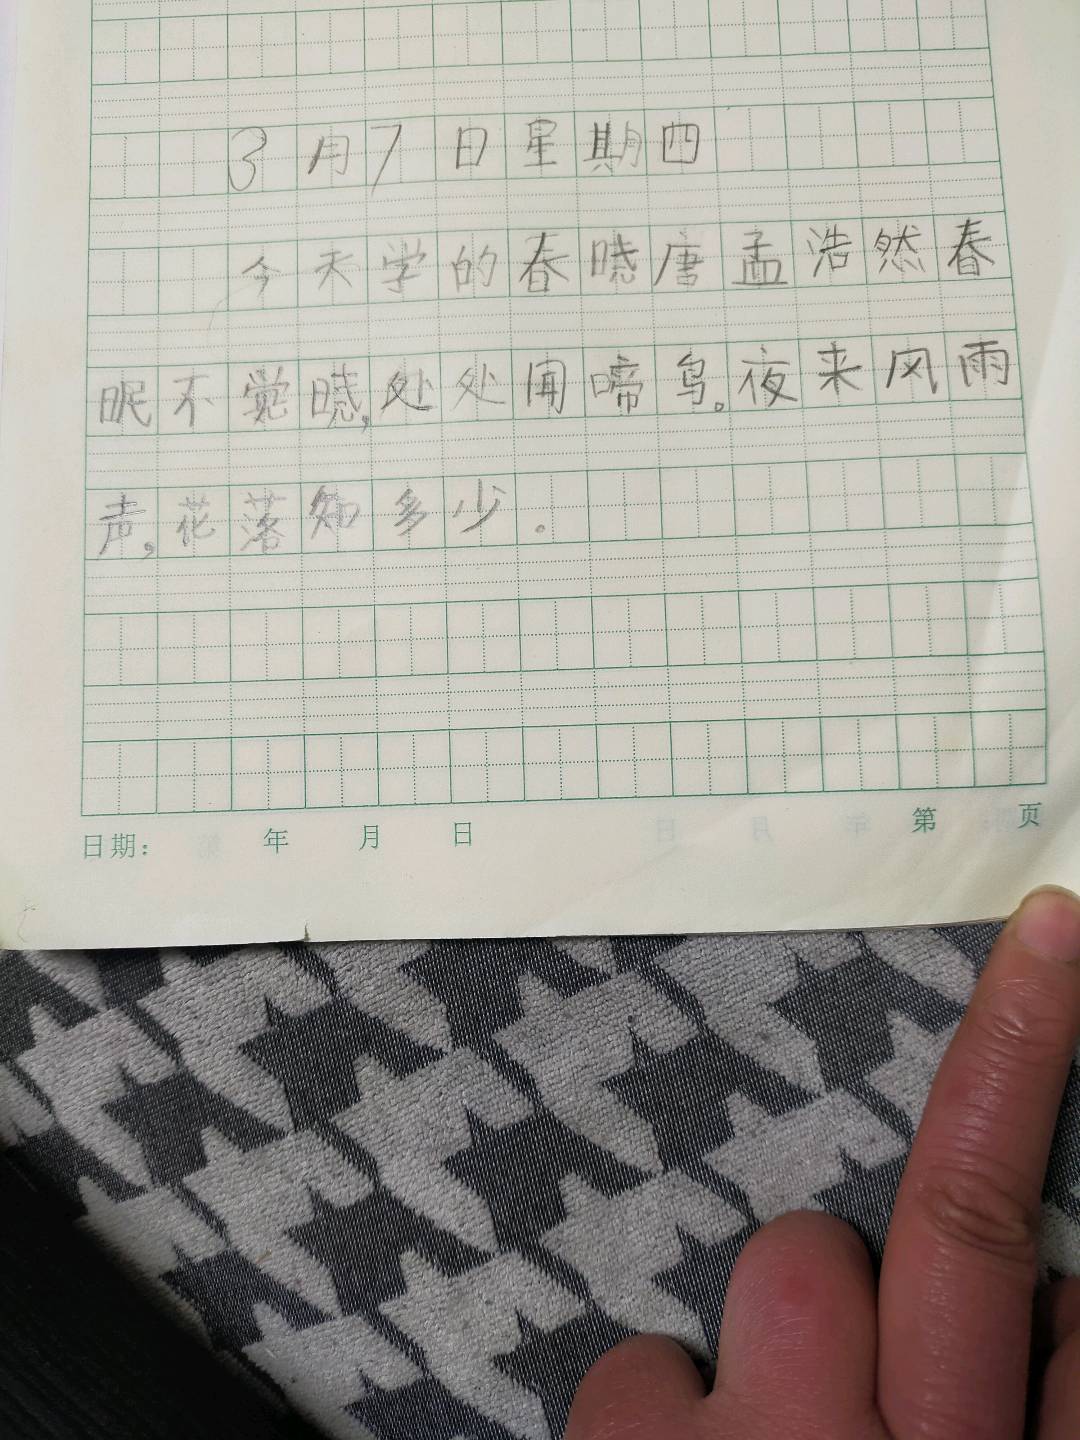 3月7日星期四
今天学的春晓唐孟浩然春
眠不觉晓,处处闻啼鸟。夜来风雨
声,花落知多少。
日期: 年 月 日 第 页